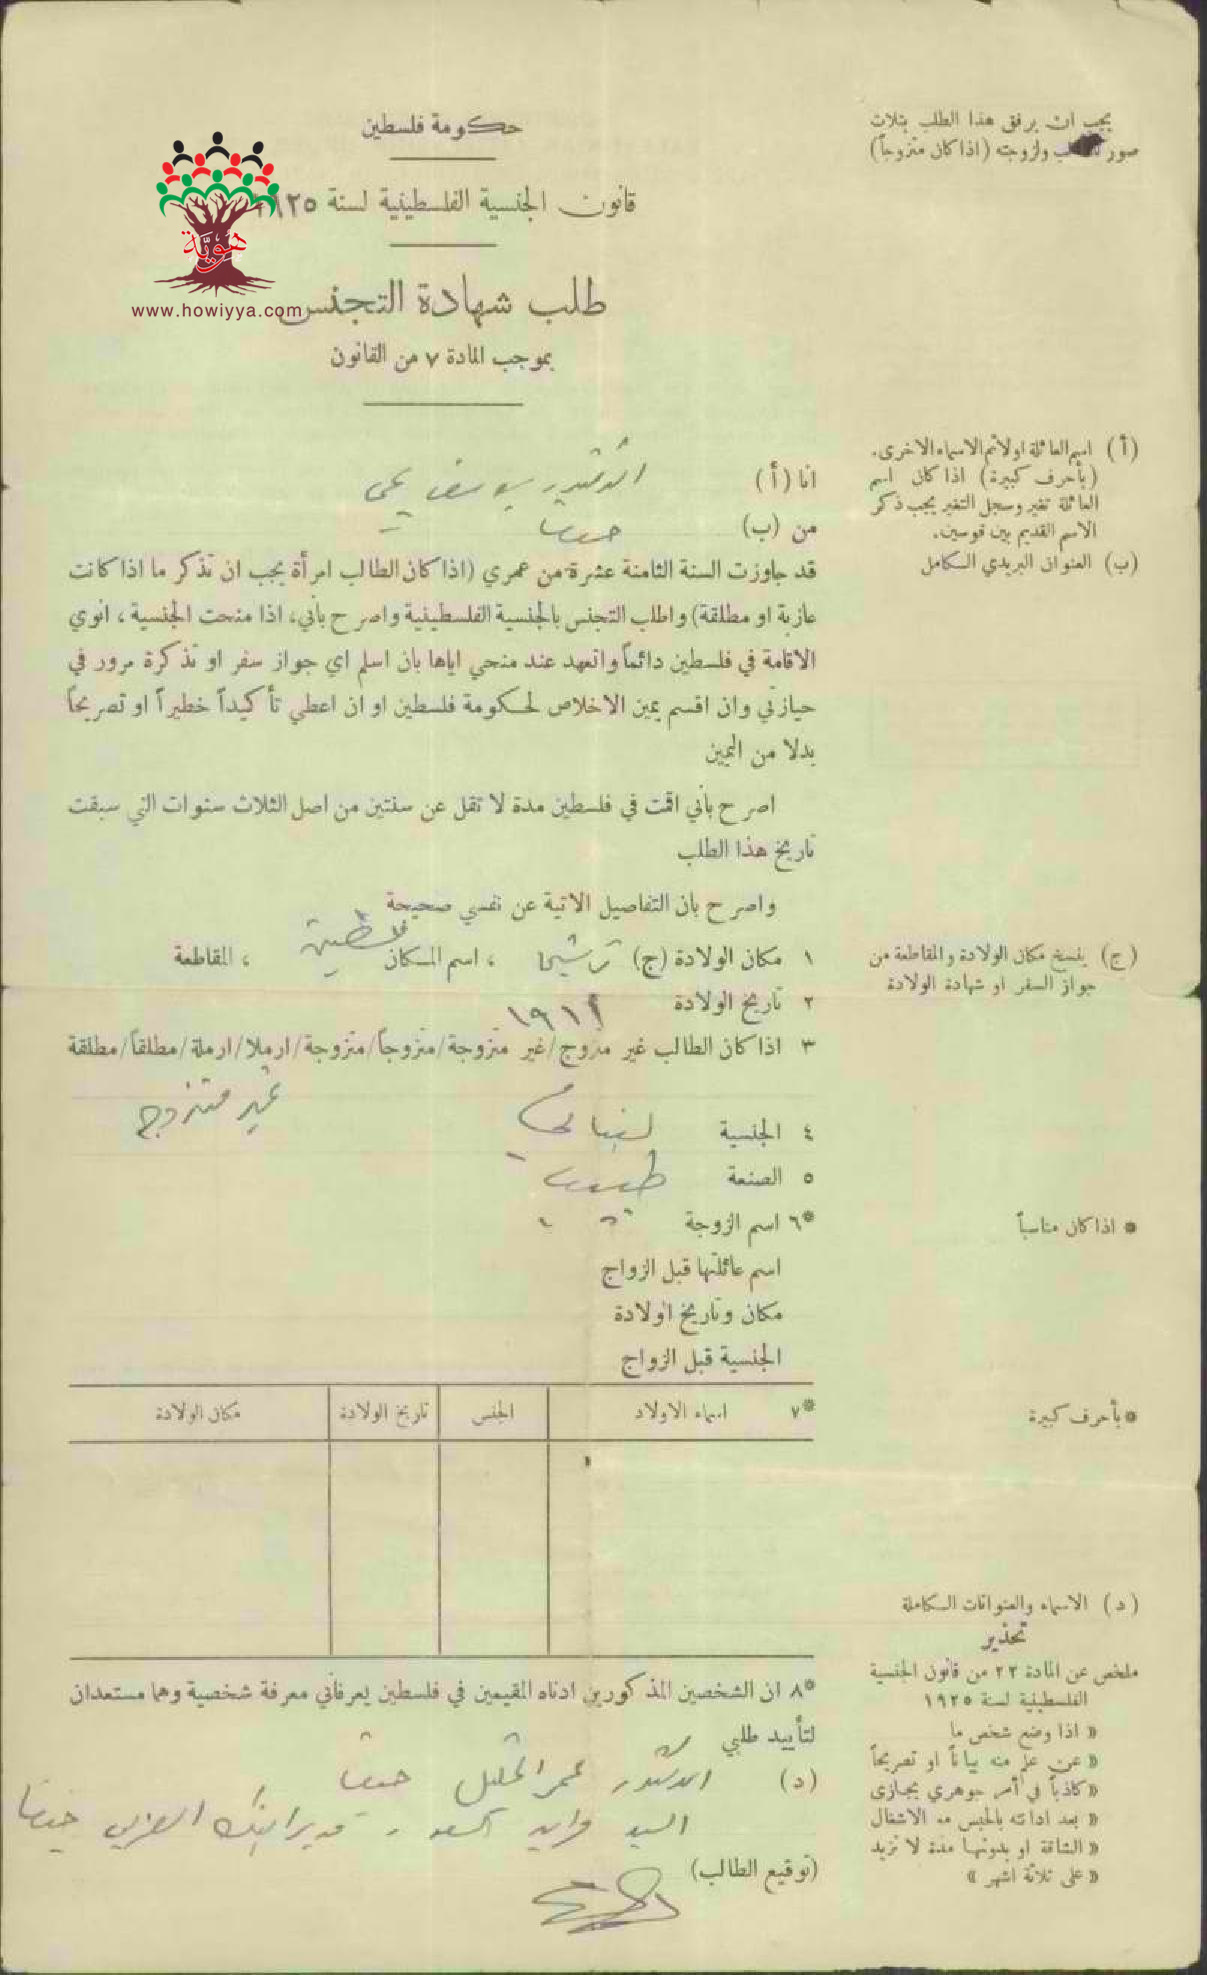 حكومة فلسطين
قانون الجنسية الفلسطينية لسنة ١٩٢٥
هوية
www.howiyya.com
طلب شهادة التجنس
بموجب المادة ٧ من القانون
يجب ان يرفق هذا الطلب بثلاث
صور ولزوجته (اذا كان متزوجاً)
(أ) اسم العائلة اولا ثم الاسماء الاخرى.
(بأحرف كبيرة) اذا كان اسم
العائلة تغير وسجل التغير يجب ذكر
الاسم القديم بين قوسين.
(ب) العنوان البريدي الكامل
انا (أ) الدكتور يوسف يحيى
من (ب) حيفا
قد جاوزت السنة الثامنة عشرة من عمري (اذا كان الطالب امرأة يجب ان تذكر ما اذا كانت
عازبة او مطلقة) واطلب التجنس بالجنسية الفلسطينية واصرح بأني، اذا منحت الجنسية، انوي
الاقامة في فلسطين دائماً واتعهد عند منحي اياها بان اسلم اي جواز سفر او تذكرة مرور في
حيازتي وان اقسم يمين الاخلاص لحكومة فلسطين او ان اعطي تأكيداً خطيراً او تصريحاً
بدلا من اليمين
اصرح بأني اقمت في فلسطين مدة لا تقل عن سنتين من اصل الثلاث سنوات التي سبقت
تاريخ هذا الطلب
واصرح بان التفاصيل الاتية عن نفسي صحيحة
١ مكان الولادة (ج) ترشيحا ، اسم المكان فلسطين ، المقاطعة
(ج) ينسخ مكان الولادة والمقاطعة من
جواز السفر او شهادة الولادة
٢ تاريخ الولادة ١٩١٢
٣ اذا كان الطالب غير متزوج/غير متزوجة/متزوجاً/متزوجة/ارملا/ارملة/مطلقاً/مطلقة
غير متزوج
٤ الجنسية لبناني
٥ الصنعة طبيب
*٦ اسم الزوجة
* اذا كان مناسباً
اسم عائلتها قبل الزواج
مكان وتاريخ الولادة
الجنسية قبل الزواج
*٧ اسماء الاولاد الجنس تاريخ الولادة مكان الولادة
* بأحرف كبيرة
(د) الاسماء والعنوانات الكاملة
تحذير
ملخص عن المادة ٢٢ من قانون الجنسية
الفلسطينية لسنة ١٩٢٥
« اذا وضع شخص ما
« عن علم منه بياناً او تصريحاً
« كاذباً في أمر جوهري يجازى
« بعد ادانته بالحبس مع الاشغال
« الشاقة او بدونها مدة لا تزيد
« على ثلاثة اشهر »
*٨ ان الشخصين المذكورين ادناه المقيمين في فلسطين يعرفاني معرفة شخصية وهما مستعدان
لتأييد طلبي
(د) الدكتور عمر الخليل حيفا
السيد السعد - مدير البنك العربي حيفا
(توقيع الطالب)